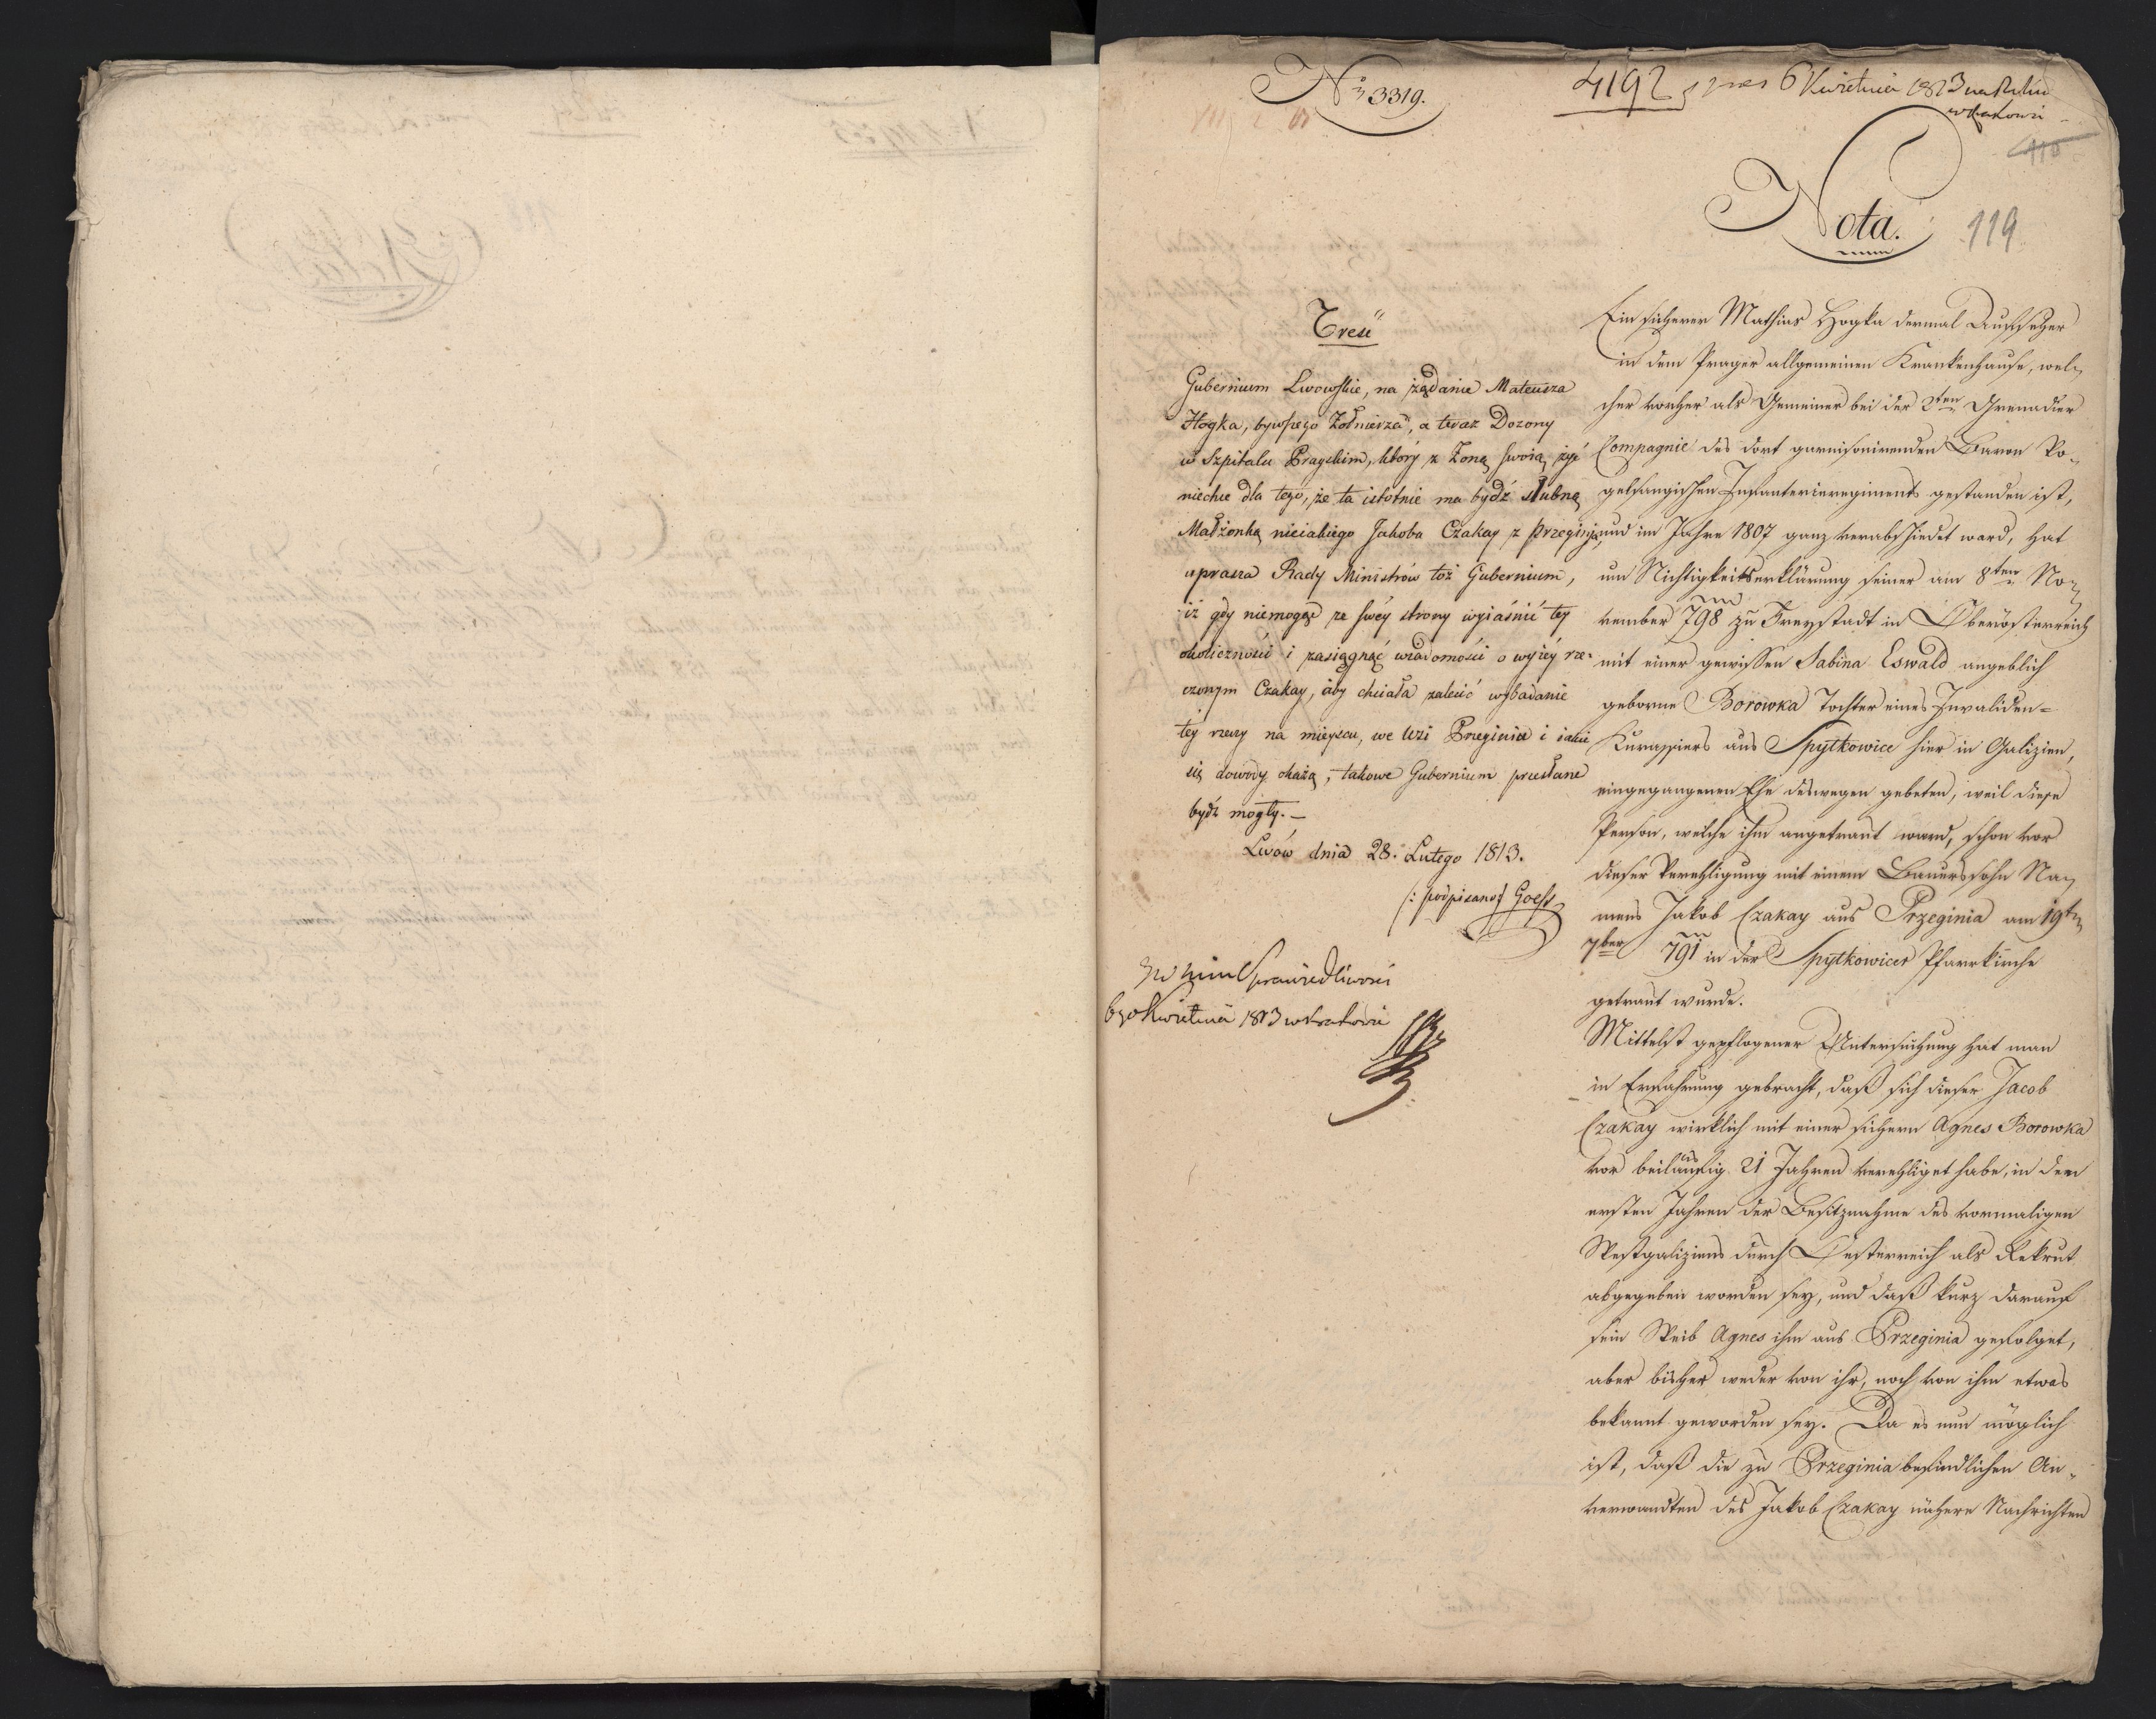 No 3319.
4192 pres 6 Kwietnia 1813 na Ruku
w Krakowi
118
Nota.
119
Treść
Gubernium Lwowskie, na żądanie Mateusza
Hogka, bywszego Żołnierza, a teraz Dozorcy
w Szpitalu Pragskim, który z Żoną swoią żyć
niechce dla tego, że ta istotnie ma bydź ślubną
Małżonką nieiakiego Jakoba Czakay z Przeginia,
uprasza Rady Ministrów toż Gubernium,
iż gdy niemogąc ze swéy strony wyiaśnić téy
okoliczności i zasiągnąć wiadomości o wyżéy rze-
czonym Czakay, aby chciała zalecić wybadanie
téy rzeczy na mieyscu, we wsi Przeginia i iakie
się dowody okażą, takowe Gubernium przesłane
bydź mogły. —
Lwów dnia 28. Lutego 1813.
/: podpisano :/ Goess
Do Min Sprawiedliwości
6go Kwietnia 1813 w Krakowie
Ein sicherer Mathias Hogka dermal Aufseher
in dem Prager allgemeinen Krankenhause, wel-
cher vorher als Gemeiner bei der 2ten Grenadier
Compagnie des dort garnisonirenden Baron Vo-
gelsangischen Infanterieregiments gestanden ist,
und im Jahre 1807 ganz verabschiedet ward, hat
um Nichtigkeitserklärung seiner am 8ten No-
vember 798 zu Freystadt in Oberösterreich
mit einer gewissen Sabina Eswald angeblich
geborne Borowka Tochter eines Invaliden-
Kurassiers aus Spytkowice hier in Galizien,
eingegangenen Ehe deswegen gebeten, weil diese
Person, welche ihm angetraut ward, schon vor
dieser Verehligung mit einem Bauerssohn Na-
mens Jakob Czakay aus Przeginia am 19ten
7ber 791 in der Spytkowicer Pfarrkirche
getraut wurde.
Mittelst gepflogener Untersuchung hat man
in Erfahrung gebracht, daß sich dieser Jacob
Czakay wirklich mit einer sichern Agnes Borowka
vor beiläufig 21 Jahren verehliget habe, in den
ersten Jahren der Besitznahme des vormaligen
Westgaliziens durch Oesterreich als Rekrut
abgegeben worden sey, und daß kurz darauf
sein Weib Agnes ihm aus Przeginia gefolget,
aber bisher weder von ihr, noch von ihm etwas
bekannt geworden sey. Da es nun möglich
ist, daß die zu Przeginia befindlichen An-
verwandten des Jakob Czakay nähere Nachrichten